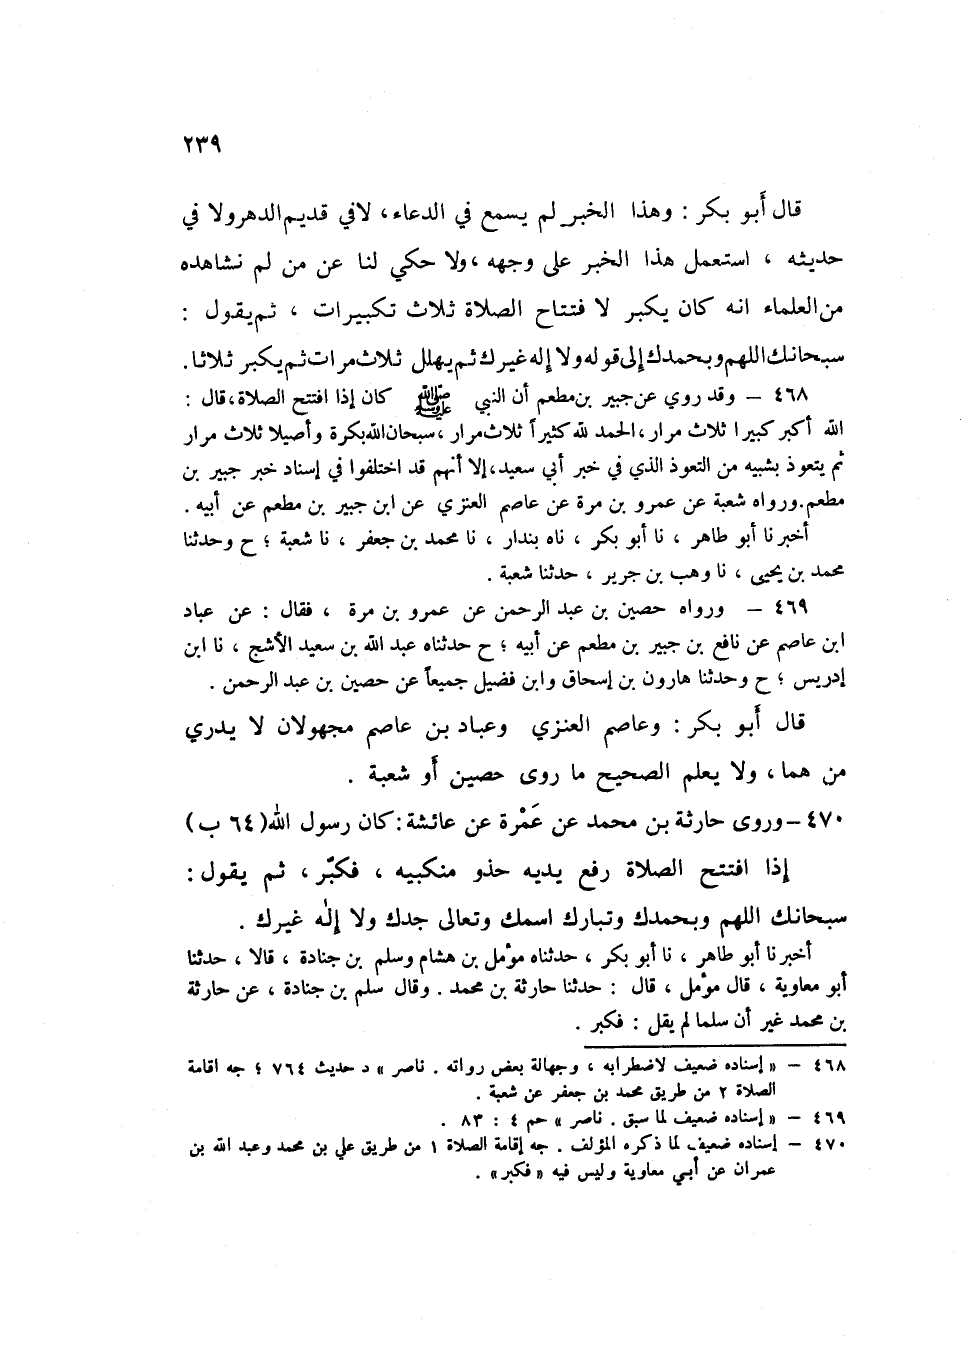 ٢٣٩
قال أبو بكر : وهذا الخبر لم يسمع في الدعاء، لافي قديم الدهر ولا في
حديثه ، استعمل هذا الخبر على وجهه ، ولا حكي لنا عن من لم نشاهده
من العلماء انه كان يكبر لا فتتاح الصلاة ثلاث تكبيرات ، ثم يقول :
سبحانك اللهم وبحمدك إلى قوله ولا إله غيرك ثم يهلل ثلاث مرات ثم يكبر ثلاثا.
٤٦٨ – وقد روي عن جبير بن مطعم أن النبي ﷺ كان إذا افتتح الصلاة، قال :
الله أكبر كبيرا ثلاث مرار ، الحمد لله كثيراً ثلاث مرار ، سبحان الله بكرة وأصيلا ثلاث مرار
ثم يتعوذ بشبيه من التعوذ الذي في خبر أبي سعيد، إلا أنهم قد اختلفوا في إسناد خبر جبير بن
مطعم. ورواه شعبة عن عمرو بن مرة عن عاصم العنزي عن ابن جبير بن مطعم عن أبيه .
أخبرنا أبو طاهر ، نا أبو بكر ، ناه بندار ، نا محمد بن جعفر ، نا شعبة ؛ ح وحدثنا
محمد بن يحيى ، نا وهب بن جرير ، حدثنا شعبة .
٤٦٩ – ورواه حصين بن عبد الرحمن عن عمرو بن مرة ، فقال : عن عباد
ابن عاصم عن نافع بن جبير بن مطعم عن أبيه ؛ ح حدثناه عبد الله بن سعيد الأشج ، نا ابن
إدريس ؛ ح وحدثنا هارون بن إسحاق وابن فضيل جميعاً عن حصين بن عبد الرحمن .
قال أبو بكر : وعاصم العنزي وعباد بن عاصم مجهولان لا يدري
من هما ، ولا يعلم الصحيح ما روى حصين أو شعبة .
٤٧٠ – وروى حارثة بن محمد عن عَمْرة عن عائشة : كان رسول الله (٦٤ ب)
إذا افتتح الصلاة رفع يديه حذو منكبيه ، فكبّر ، ثم يقول :
سبحانك اللهم وبحمدك وتبارك اسمك وتعالى جدك ولا إلٰه غيرك .
أخبرنا أبو طاهر ، نا أبو بكر ، حدثناه مؤمل بن هشام وسلم بن جنادة ، قالا ، حدثنا
أبو معاوية ، قال مؤمل ، قال : حدثنا حارثة بن محمد . وقال سلم بن جنادة ، عن حارثة
بن محمد غير أن سلما لم يقل : فكبر .
٤٦٨ – « إسناده ضعيف لاضطرابه ، وجهالة بعض رواته . ناصر » د حديث ٧٦٤ ؛ جه اقامة
الصلاة ٢ من طريق محمد بن جعفر عن شعبة .
٤٦٩ – « إسناده ضعيف لما سبق . ناصر » حم ٤ : ٨٣ .
٤٧٠ – إسناده ضعيف لما ذكره المؤلف . جه إقامة الصلاة ١ من طريق علي بن محمد وعبد الله بن
عمران عن أبي معاوية وليس فيه « فكبر» .